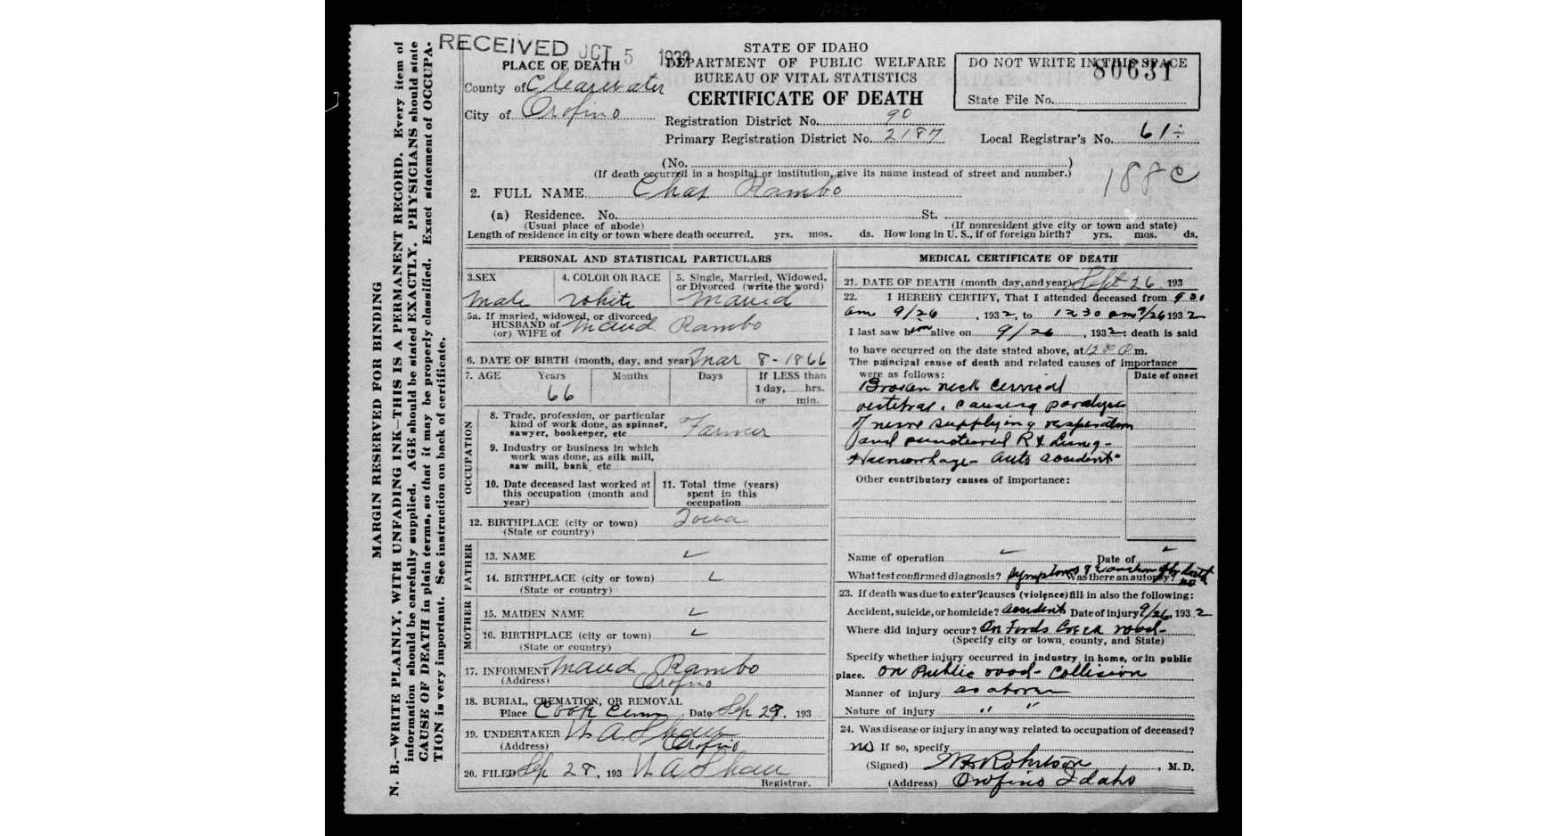 MARGIN RESERVED FOR BINDING
N. B.—WRITE PLAINLY, WITH UNFADING INK—THIS IS A PERMANENT RECORD. Every item of
information should be carefully supplied. AGE should be stated EXACTLY. PHYSICIANS should state
CAUSE OF DEATH in plain terms, so that it may be properly classified. Exact statement of OCCUPA-
TION is very important. See instruction on back of certificate.
RECEIVED OCT 5 1932
STATE OF IDAHO
DEPARTMENT OF PUBLIC WELFARE
BUREAU OF VITAL STATISTICS
CERTIFICATE OF DEATH
PLACE OF DEATH
County of Clearwater
City of Orofino
Registration District No. 90
Primary Registration District No. 2187
DO NOT WRITE IN THIS SPACE
80631
State File No.
Local Registrar's No. 61
(No. )
(If death occurred in a hospital or institution, give its name instead of street and number.)
188c
2. FULL NAME Chas Rambo
(a) Residence. No. St.
(Usual place of abode) (If nonresident give city or town and state)
Length of residence in city or town where death occurred. yrs. mos. ds. How long in U. S., if of foreign birth? yrs. mos. ds.
PERSONAL AND STATISTICAL PARTICULARS
3. SEX 4. COLOR OR RACE 5. Single, Married, Widowed,
or Divorced (write the word)
Male White
5a. If married, widowed, or divorced
HUSBAND of Maud Rambo
(or) WIFE of
6. DATE OF BIRTH (month, day, and year) Mar 8-1866
7. AGE Years Months Days If LESS than
66 1 day, hrs.
or min.
OCCUPATION
8. Trade, profession, or particular
kind of work done, as spinner, Farmer
sawyer, bookeeper, etc
9. Industry or business in which
work was done, as silk mill,
saw mill, bank, etc
10. Date deceased last worked at
this occupation (month and
year)
11. Total time (years)
spent in this
occupation
12. BIRTHPLACE (city or town) Iowa
(State or country)
FATHER
13. NAME
14. BIRTHPLACE (city or town)
(State or country)
MOTHER
15. MAIDEN NAME
16. BIRTHPLACE (city or town)
(State or country)
17. INFORMENT Maud Rambo
(Address) Orofino
18. BURIAL, CREMATION, OR REMOVAL
Place Cook Cem Date Sep 29, 193
19. UNDERTAKER W A Shaw
(Address) Orofino
20. FILED Sep 28, 193 W A Shaw
Registrar.
MEDICAL CERTIFICATE OF DEATH
21. DATE OF DEATH (month, day, and year) Sept 26 193
22. I HEREBY CERTIFY, That I attended deceased from
am 9/26, 1932, to 12 30 pm 9/26 1932
I last saw him alive on 9/26, 1932; death is said
to have occurred on the date stated above, at m.
The principal cause of death and related causes of importance
were as follows: Date of onset
Broken neck cervical
vertebrae, causing paralysis
of nerve supplying respiration
and punctured Rt Lung-
Haemorrhage- auto accident
Other contributory causes of importance:
Name of operation Date of
What test confirmed diagnosis? Symptoms Was there an autopsy? no
23. If death was due to external causes (violence) fill in also the following:
Accident, suicide, or homicide? accident Date of injury 9/26, 1932
Where did injury occur? On Fords Creek road-
(Specify city or town, county, and State)
Specify whether injury occurred in industry, in home, or in public
place. On Public road- Collision
Manner of injury as above
Nature of injury " "
24. Was disease or injury in any way related to occupation of deceased?
no If so, specify
(Signed) Robertson, M. D.
(Address) Orofino Idaho